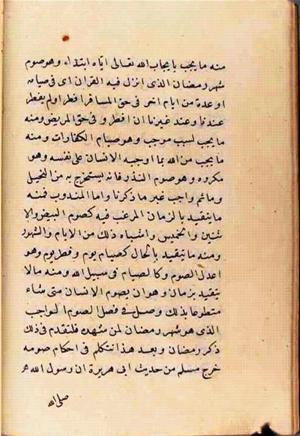 منه ما يجب بايجاب الله تعالى اياه ابتداء وهو صوم
شهر رمضان الذي انزل فيه القران اى فى صيامه
او عدة من ايام اخر فى حق المسافر افطر او لم يفطر
عندنا وعند غيرنا ان افطر وفى حق المريض ومنه
ما يجب لسبب موجب وهو صيام الكفارات ومنه
ما يجب من الله بما اوجبه الانسان على نفسه وهو
مكروه وهو صوم النذر فانه يستخرج به من البخيل
وما ثم واجب غير ما ذكرنا واما المندوب فمنه
ما يتقيد بالزمان المرغب فيه كصوم البيض والا
ثنين والخميس واشباه ذلك من الايام والشهور
ومنه ما يتقيد بالحال كصيام يوم وفطر يوم وهو
اعدل الصوم وكالصيام فى سبيل الله ومنه ما لا
يتقيد بزمان وهو ان يصوم الانسان متى شاء
متطوعا بذلك وصل فى فصل الصوم الواجب
الذى هو شهر رمضان لمن شهده فلنقدم فى ذلك
ذكر رمضان وبعد هذا نتكلم فى احكام صومه
خرج مسلم من حديث ابى هريرة ان رسول الله
صلى الله